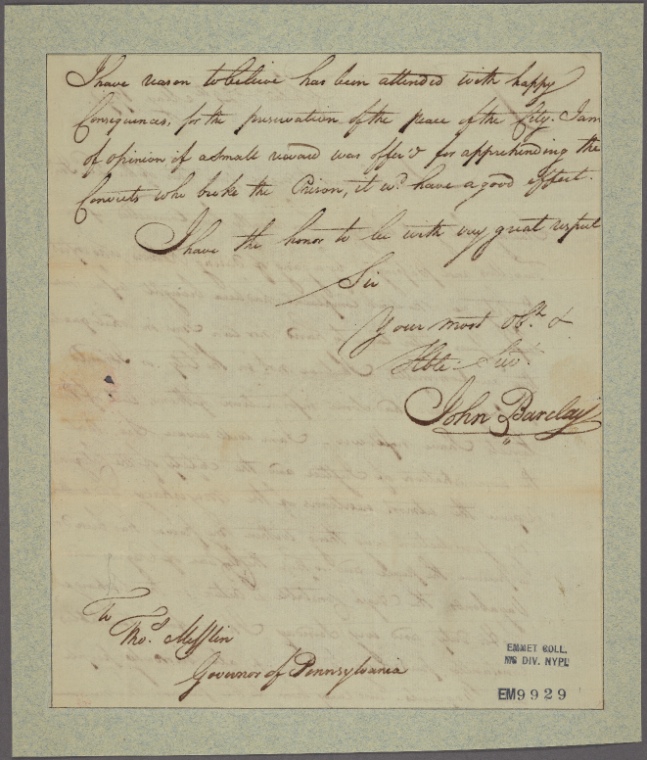 I have reason to believe has been attended with happy
Consequences, for the preservation of the peace of the City. I am
of opinion if a small reward was offer'd for apprehending the
Convicts who broke the Prison, it wd. have a good effect.
I have the honor to be with very great respect
Sir
Your most Obt. &
Hble Servt.
John Barclay
To
Thos. Mifflin
Governor of Pennsylvania
EMMET COLL.
MS DIV. NYPL
EM9929